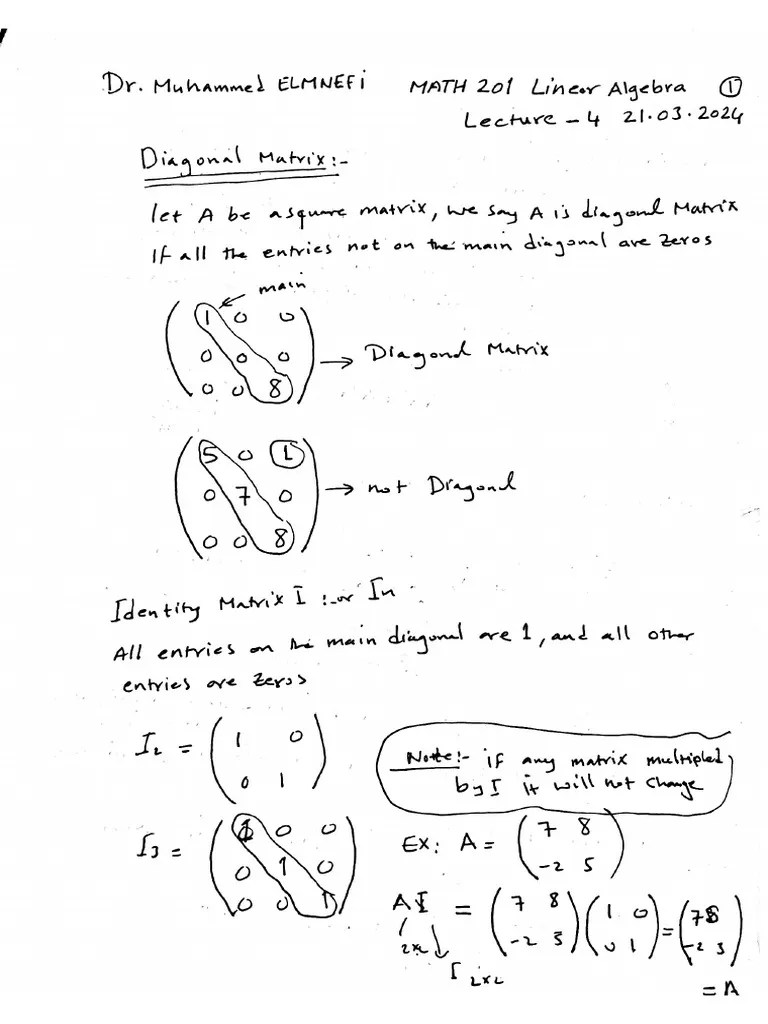 Dr. Muhammed ELMNEFi MATH 201 Linear Algebra ①
Lecture - 4 21.03.2024
Diagonal Matrix:-
let A be a square matrix, we say A is diagonal Matrix
If all the entries not on the main diagonal are Zeros
main
1 0 0
0 0 0 → Diagonal Matrix
0 0 8
5 0 1
0 7 0 → not Diagonal
0 0 8
Identity Matrix I :- or In
All entries on the main diagonal are 1, and all other
entries are Zeros
I2 = ( 1 0
0 1 )
Note:- if any matrix multipled
by I it will not change
I3 = ( 1 0 0
0 1 0
0 0 1 )
EX: A = ( 7 8
-2 5 )
AI = ( 7 8 ) ( 1 0 ) = ( 7 8 )
-2 3 0 1 -2 3
2x2
I 2x2
= A